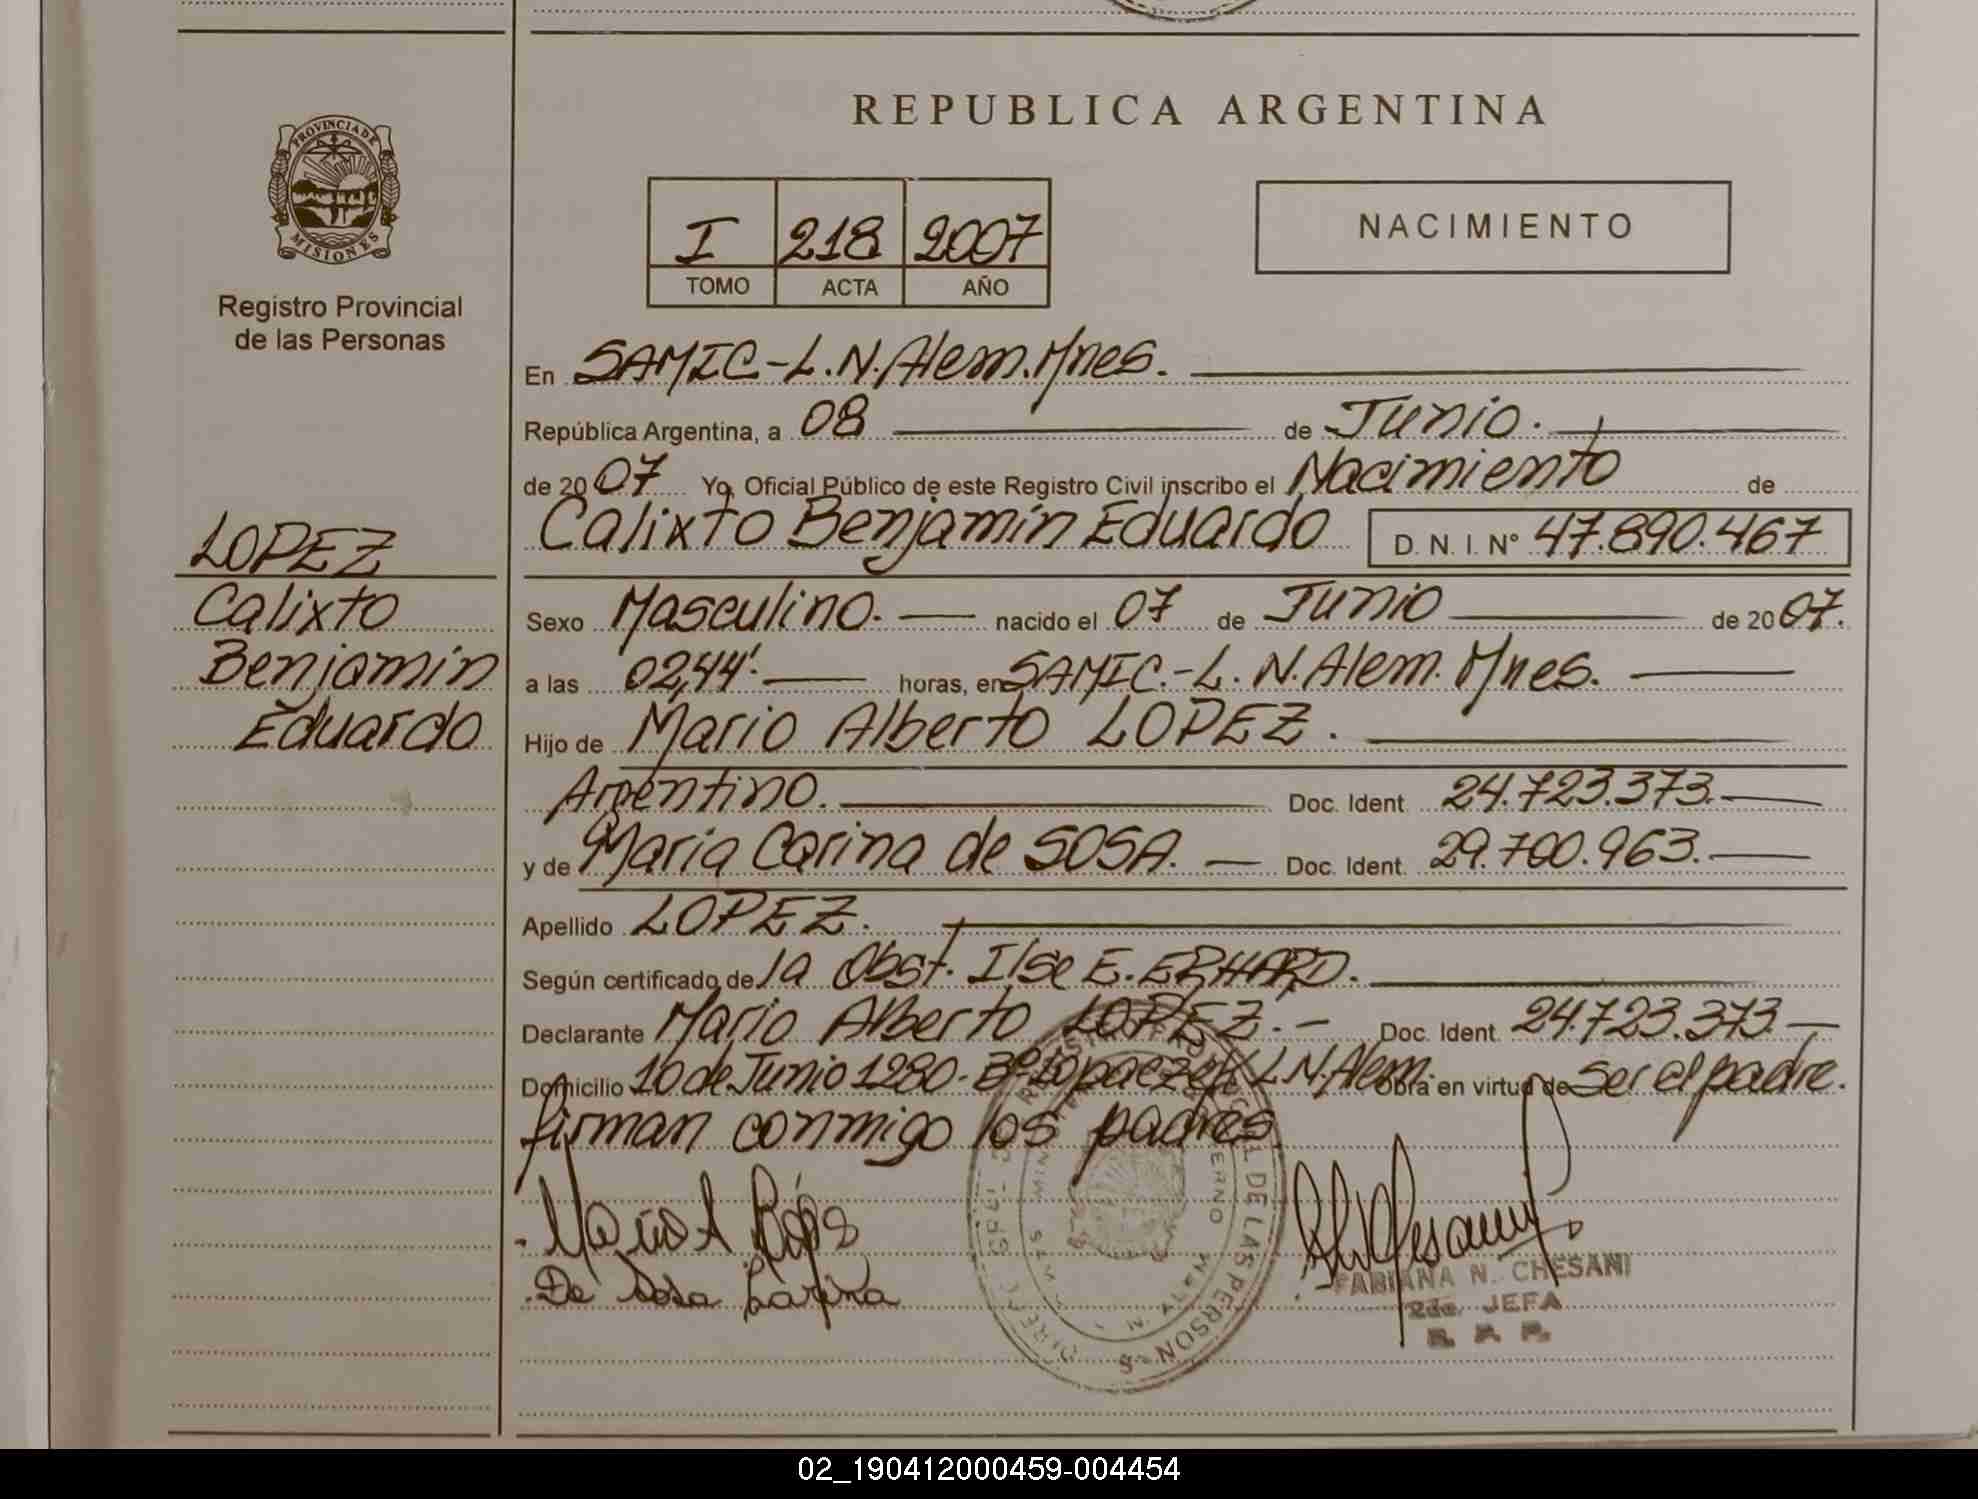 PROVINCIA DE
MISIONES
Registro Provincial
de las Personas
LOPEZ
Calixto
Benjamín
Eduardo
REPUBLICA ARGENTINA
I 218 2007
TOMO ACTA AÑO
NACIMIENTO
En SAMIC-L.N.Alem.Mnes.
República Argentina, a 08 de Junio.
de 2007 Yo, Oficial Público de este Registro Civil inscribo el Nacimiento de
Calixto Benjamín Eduardo D. N. I. N° 47.890.467
Sexo Masculino. nacido el 07 de Junio de 2007.
a las 02,44'. horas, en SAMIC.-L. N. Alem. Mnes.
Hijo de Mario Alberto LOPEZ.
Argentino. Doc. Ident. 24.723.373.
y de Maria Carina de SOSA. Doc. Ident. 29.700.963.
Apellido LOPEZ.
Según certificado de la Obst. Ilse E. ERHARD.
Declarante Mario Alberto LOPEZ.- Doc. Ident. 24.723.373
Domicilio 10 de Junio 1280- L.N.Alem. Obra en virtud de Ser el padre.
firman conmigo los padres
Mario A López
De Sosa Carina
FABIANA N. CHESANI
2da. JEFA
R. P. P.
02_190412000459-004454